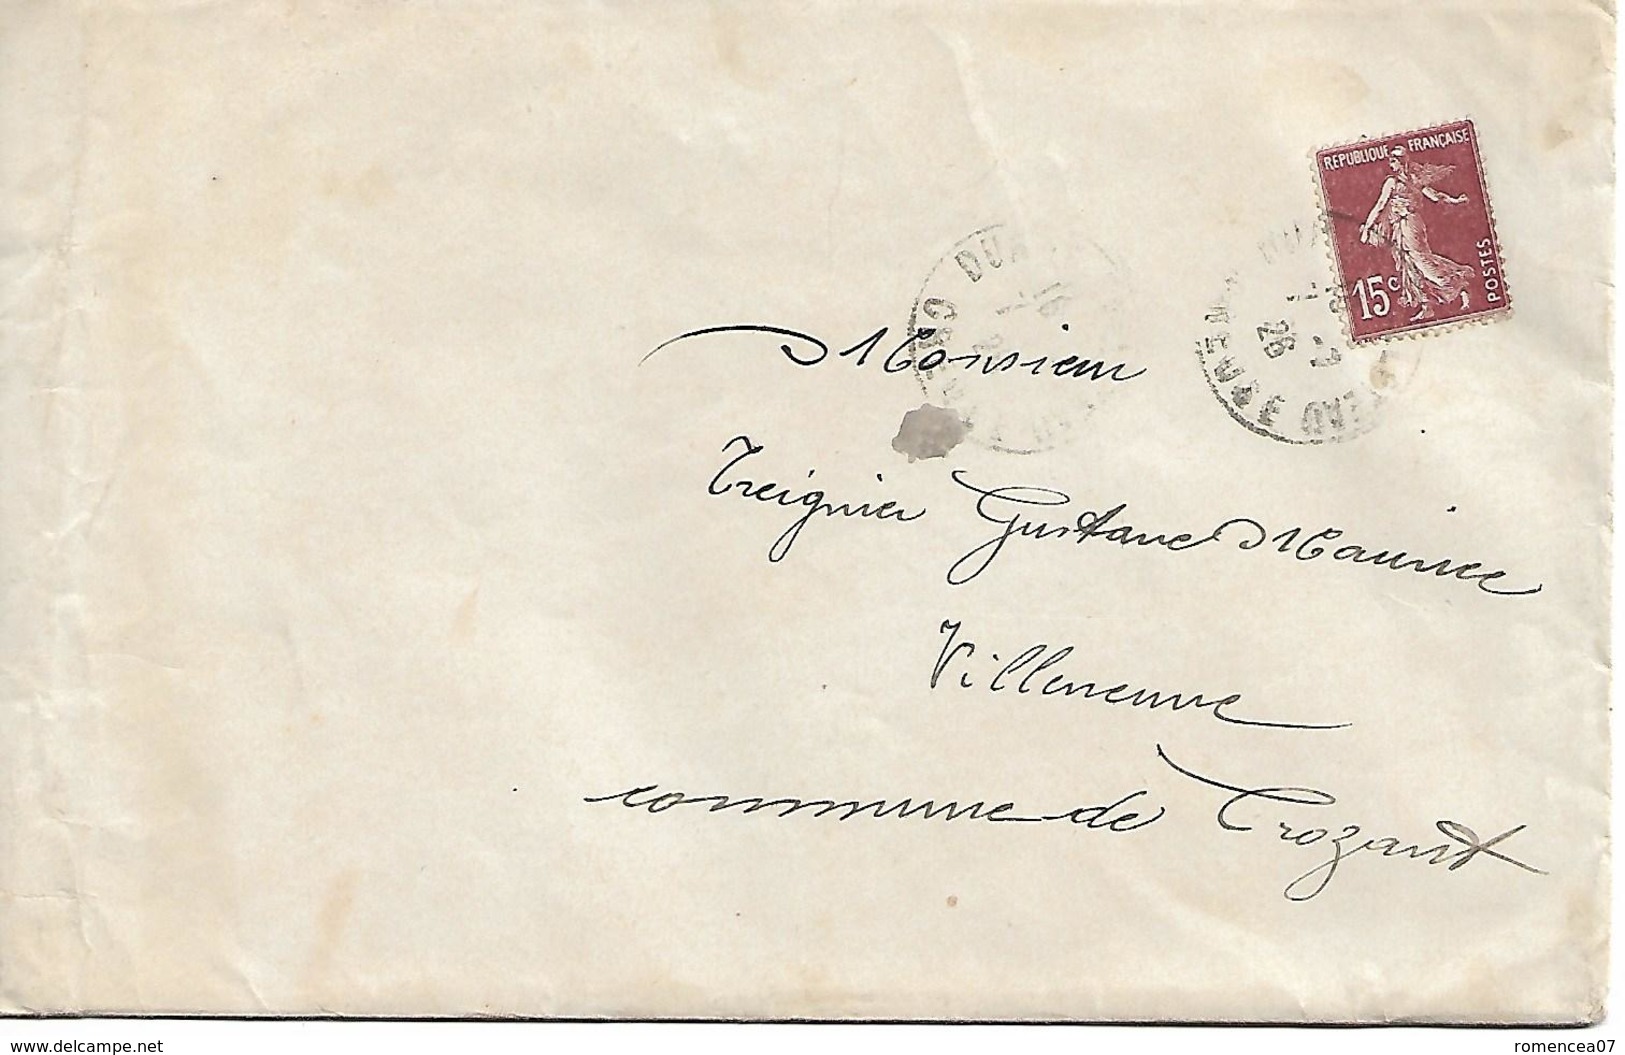 REPUBLIQUE FRANÇAISE
15c
POSTES
26
CREUSE
Monsieur
Treignier Gustave Maurice
Villeneuve
commune de Crozant
www.delcampe.net
romencea07